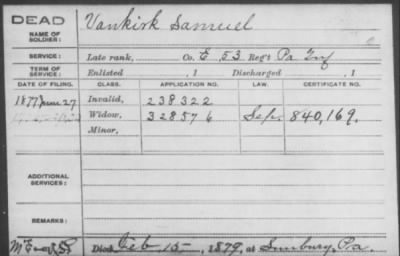 DEAD
NAME OF SOLDIER: Vankirk Samuel
SERVICE: Late rank, Co. E 53 Reg't Pa Inf
TERM OF SERVICE: Enlisted , 1 Discharged , 1
DATE OF FILING. CLASS. APPLICATION NO. LAW. CERTIFICATE NO.
1877 June 27 Invalid, 238322
Widow, 328576 Sep. 840,169.
Minor,
ADDITIONAL SERVICES:
REMARKS:
Died Feb 15, 1879, at Sunbury, Pa.